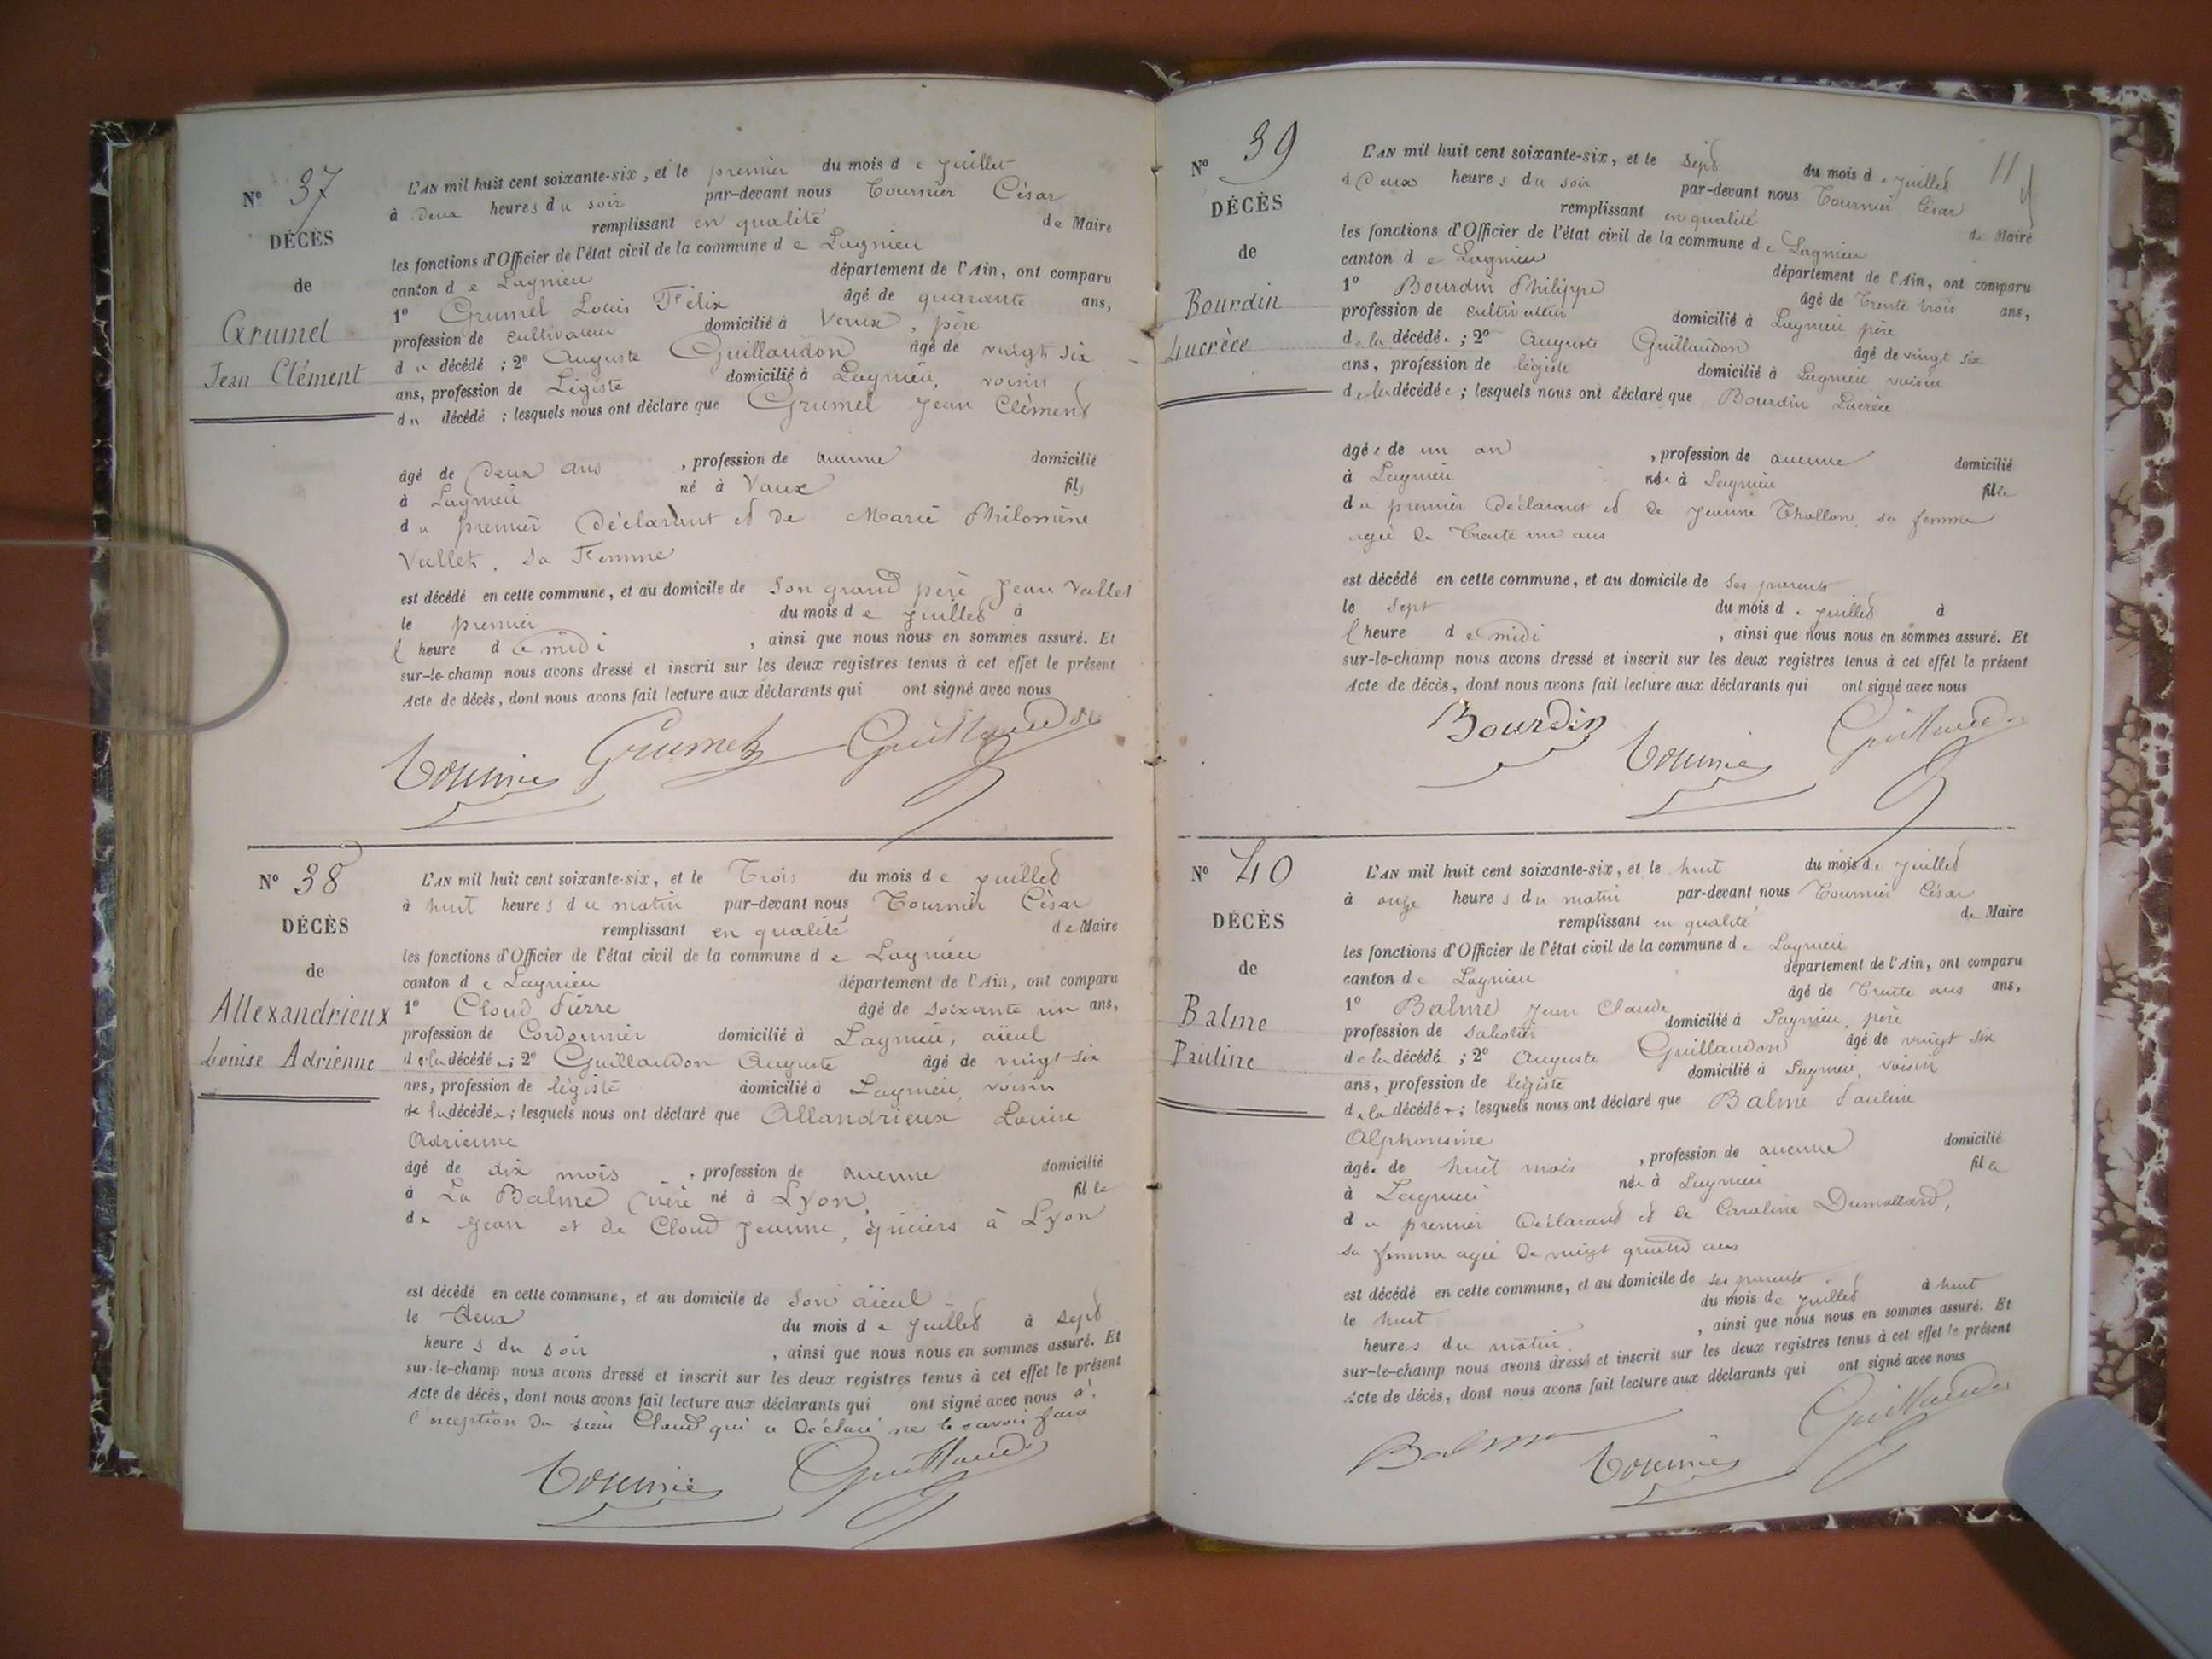 N° 37
DÉCÈS
de
Grumel
Jean Clément
L'AN mil huit cent soixante-six, et le premier du mois de juillet
à deux heures du soir par-devant nous Tournier César
remplissant en qualité de Maire
les fonctions d'Officier de l'état civil de la commune de Lagnieu
canton de Lagnieu département de l'Ain, ont comparu
1° Grumel Louis Félix âgé de quarante ans,
profession de cultivateur domicilié à Vaux, père
du décédé ; 2° Auguste Guillaudon âgé de vingt six
ans, profession de Légiste domicilié à Lagnieu, voisin
du décédé ; lesquels nous ont déclaré que Grumel Jean Clément
âgé de deux ans, profession de aucune domicilié
à Lagnieu né à Vaux fils
du premier déclarant et de Marie Philomène
Vallet, sa Femme
est décédé en cette commune, et au domicile de son grand père Jean Vallet
le premier du mois de juillet à
l heure de midi, ainsi que nous nous en sommes assuré. Et
sur-le-champ nous avons dressé et inscrit sur les deux registres tenus à cet effet le présent
Acte de décès, dont nous avons fait lecture aux déclarants qui ont signé avec nous
Tournier Grumel Guillaudon
N° 38
DÉCÈS
de
Allexandrieux
Louise Adrienne
L'AN mil huit cent soixante-six, et le Trois du mois de juillet
à huit heures du matin par-devant nous Tournier César
remplissant en qualité de Maire
les fonctions d'Officier de l'état civil de la commune de Lagnieu
canton de Lagnieu département de l'Ain, ont comparu
1° Cloud Pierre âgé de soixante un ans,
profession de Cordonnier domicilié à Lagnieu, aïeul
de la décédée ; 2° Guillaudon Auguste âgé de vingt-six
ans, profession de légiste domicilié à Lagnieu, voisin
de la décédée ; lesquels nous ont déclaré que Allandrieux Louise
Adrienne
âgé de dix mois, profession de aucune domicilié
à La Balme (isère né à Lyon, fille
de Jean et de Cloud Jeanne, épiciers à Lyon
est décédé en cette commune, et au domicile de son aïeul
le deux du mois de juillet à sept
heures du soir, ainsi que nous nous en sommes assuré. Et
sur-le-champ nous avons dressé et inscrit sur les deux registres tenus à cet effet le présent
Acte de décès, dont nous avons fait lecture aux déclarants qui ont signé avec nous à
l'exception du sieur Cloud qui a déclaré ne le savoir faire
Tournier Guillaudon
11
N° 39
DÉCÈS
de
Bourdin
Lucrèce
L'AN mil huit cent soixante-six, et le sept du mois de juillet
à Deux heures du soir par-devant nous Tournier César
remplissant en qualité de Maire
les fonctions d'Officier de l'état civil de la commune de Lagnieu
canton de Lagnieu département de l'Ain, ont comparu
1° Bourdin Philippe âgé de Trente trois ans,
profession de cultivateur domicilié à Lagnieu père
de la décédée ; 2° Auguste Guillaudon âgé de vingt six
ans, profession de légiste domicilié à Lagnieu voisin
de la décédée ; lesquels nous ont déclaré que Bourdin Lucrèce
âgée de un an, profession de aucune domicilié
à Lagnieu née à Lagnieu fille
du premier déclarant et de Jeanne Thollon, sa femme
agée de Trente un ans
est décédé en cette commune, et au domicile de ses parents
le sept du mois de juillet à
l heure de midi, ainsi que nous nous en sommes assuré. Et
sur-le-champ nous avons dressé et inscrit sur les deux registres tenus à cet effet le présent
Acte de décès, dont nous avons fait lecture aux déclarants qui ont signé avec nous
Bourdin Tournier Guillaudon
N° 40
DÉCÈS
de
Balme
Pauline
L'AN mil huit cent soixante-six, et le huit du mois de juillet
à onze heures du matin par-devant nous Tournier César
remplissant en qualité de Maire
les fonctions d'Officier de l'état civil de la commune de Lagnieu
canton de Lagnieu département de l'Ain, ont comparu
1° Balme Jean Claude âgé de Trente ans ans,
profession de sabotier domicilié à Lagnieu, père
de la décédé ; 2° Auguste Guillaudon âgé de vingt six
ans, profession de légiste domicilié à Lagnieu, voisin
de la décédée ; lesquels nous ont déclaré que Balme Pauline
Alphonsine
âgée de huit mois, profession de aucune domicilié
à Lagnieu née à Lagnieu fille
du premier déclarant et de Caroline Dumollard,
sa femme agée de vingt quatre ans
est décédé en cette commune, et au domicile de ses parents
le huit du mois de juillet à huit
heures du matin, ainsi que nous nous en sommes assuré. Et
sur-le-champ nous avons dressé et inscrit sur les deux registres tenus à cet effet le présent
Acte de décès, dont nous avons fait lecture aux déclarants qui ont signé avec nous
Balme Tournier Guillaudon